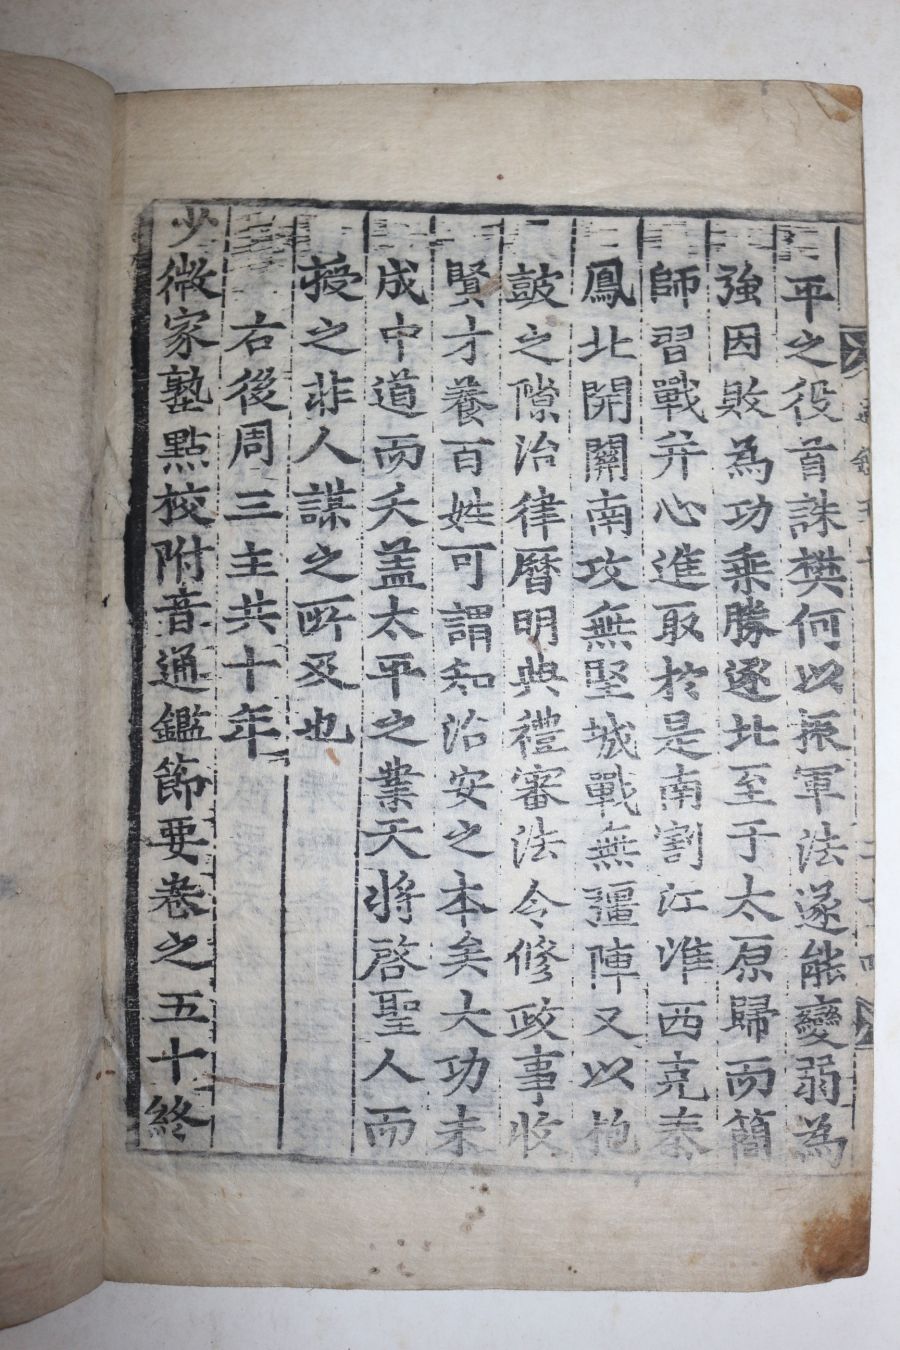 平之役首誅樊何以振軍法遂能變弱為
強因敗為功乗勝逐北至于太原歸而簡
師習戰并心進取於是南割江淮西克秦
鳳北開關南攻無堅城戰無彊陣又以抱
皷之隙治律曆明典禮審法令修政事收
賢才養百姓可謂知治安之本矣大功未
成中道而夭盖太平之業天將啓聖人而
授之非人謀之所及也
右後周三主共十年
少微家塾點校附音通鑑節要卷之五十終